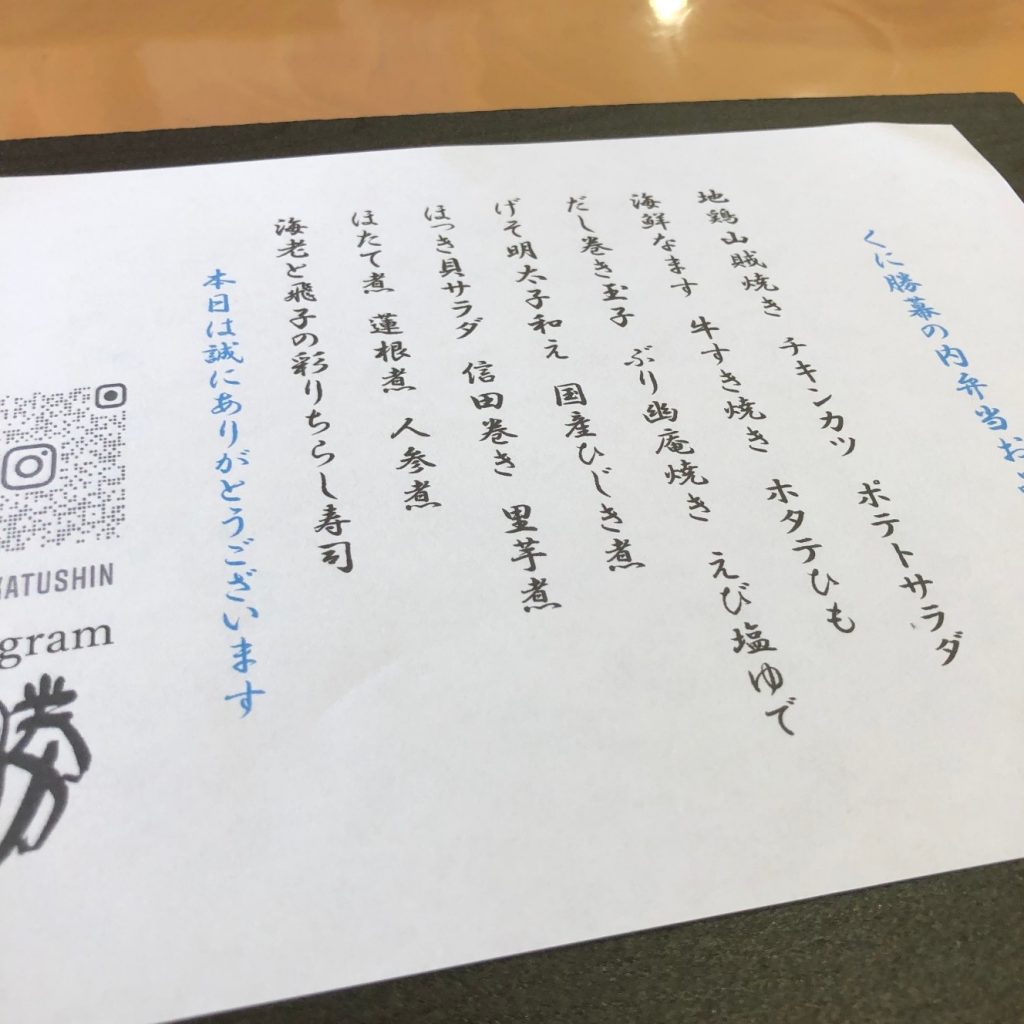 くに勝幕の内弁当お
地鶏山賊焼き チキンカツ ポテトサラダ
海鮮なます 牛すき焼き ホタテひも
だし巻き玉子 ぶり幽庵焼き えび塩ゆで
げそ明太子和え 国産ひじき煮
ほっき貝サラダ 信田巻き 里芋煮
ほたて煮 蓮根煮 人参煮
海老と飛子の彩りちらし寿司
本日は誠にありがとうございます
KATUSHIN
gram
勝